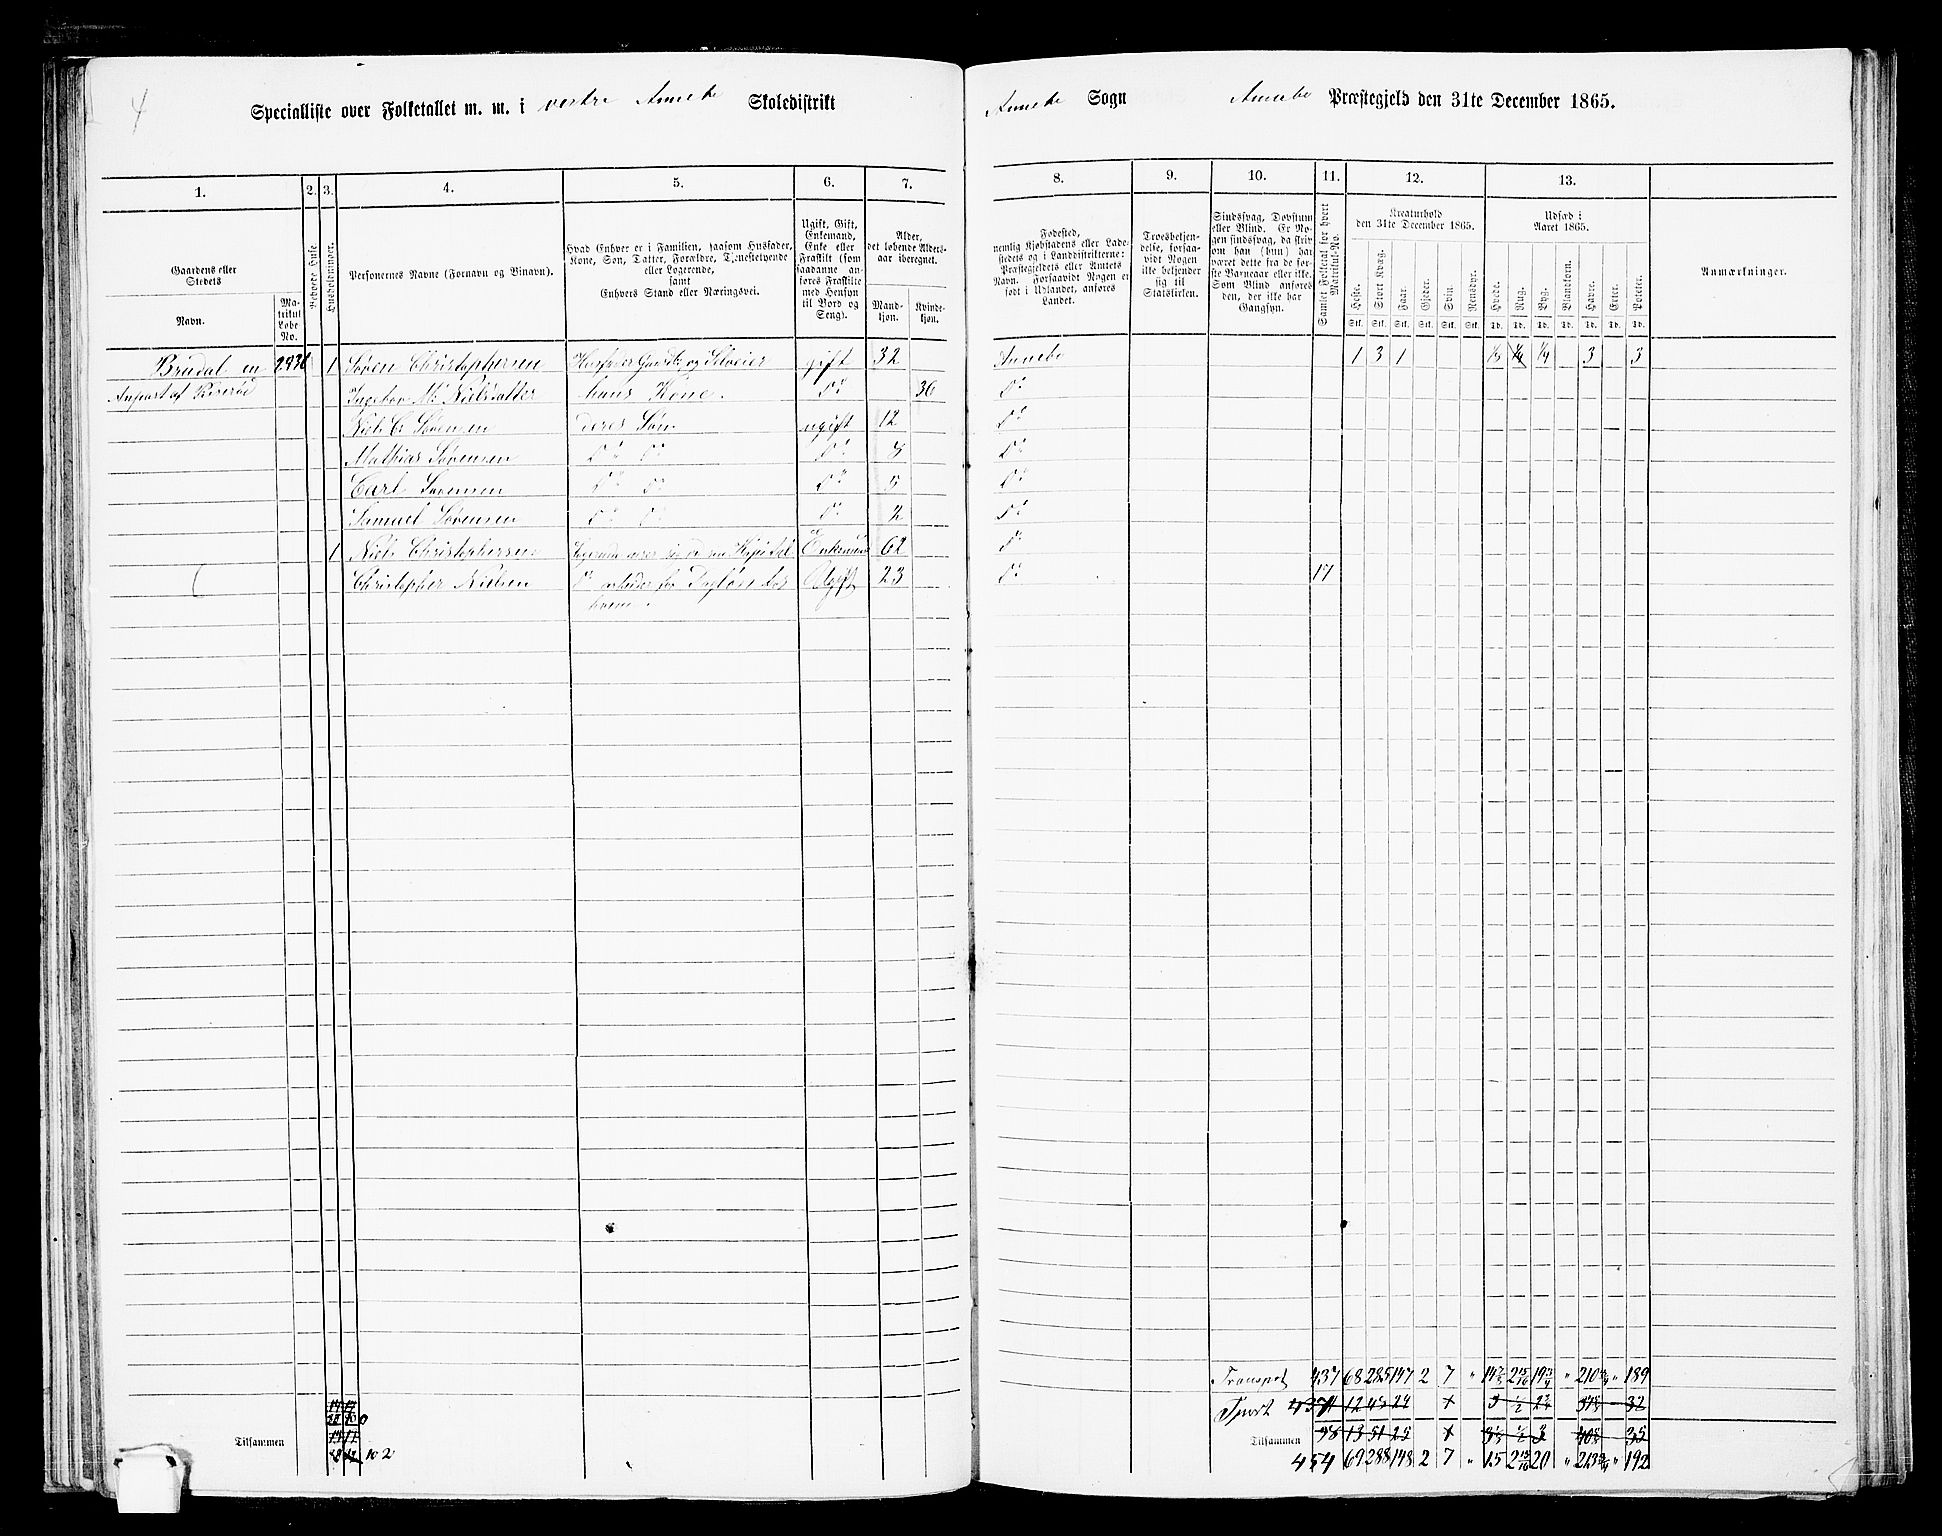 4
Specialliste over Folketallet m. m. i vestre Annebo Skoledistrikt
Annebo Sogn Annebo Præstegjeld den 31te December 1865.
1. 2. 3. 4. 5. 6. 7.
8. 9. 10. 11. 12. 13.
Gaardens eller Stedets
Navn.
Matrikul Løbe No.
Beboede Huse.
Husholdninger.
Personernes Navne (Fornavn og Binavn).
Hvad Enhver er i Familien, saasom Husfader,
Kone, Søn, Datter, Forældre, Tjenestetyende
eller Logerende,
samt
Enhvers Stand eller Næringsvei.
Ugift, Gift,
Enkemand,
Enke eller
Fraskilt (som
saadanne an-
føres Fraskilte
med Hensyn
til Bord og
Seng).
Alder,
det løbende Alders-
aar iberegnet.
Mand-
kjøn.
Kvinde-
kjøn.
Fødested,
nemlig Kjøbstadens eller Lade-
stedets og i Landdistrikterne:
Præstegjeldets eller Amtets
Navn. Forsaavidt Nogen er
født i Udlandet, anføres
Landet.
Troesbekjen-
delse, forsaa-
vidt Nogen
ikke bekjender
sig til
Statskirken.
Sindssvag, Døvstum
eller Blind. Er No-
gen sindssvag, da skriv
om han (hun) har
været dette fra de før-
ste Barneaar eller ikke.
Som Blind anføres
den, der ikke har
Gangsyn.
Samlet Folketal for hvert Matrikul-No.
Kreaturhold
den 31te December 1865.
Heste. Stort Kvæg. Faar. Gjeder. Svin. Rensdyr.
Stk. Stk. Stk. Stk. Stk. Stk.
Udsæd i
Aaret 1865.
Hvede. Rug. Byg. Blandkorn. Havre. Erter. Poteter.
Td. Td. Td. Td. Td. Td. Td.
Anmærkninger.
Brudal en 1 Søren Christophersen Husfader Gaardb. og Selveier gift 32 Annebo 1 3 1 1/4 3 3
Anpart af Ingebor M: Nielsdatter hans Kone. Do 36 Do
Niels C Sørensen deres Søn ugift 12 Do
Mathias Sørensen Do Do Do Do
Carl Sørensen Do Do Do 5 Do
Samuel Sørensen Do Do Do 2 Do
1 Niels Christophersen Enkemand 62 Do
Christopher Nielsen Do arbeider for Ugift 23 Do 17
Transport 437 68 285 147 2 7 " 210 " 189
Tport 12 32
Tilsammen 102
Tilsammen 13 51 25 35
454 69 288 148 2 7 " 15 20 " " 192